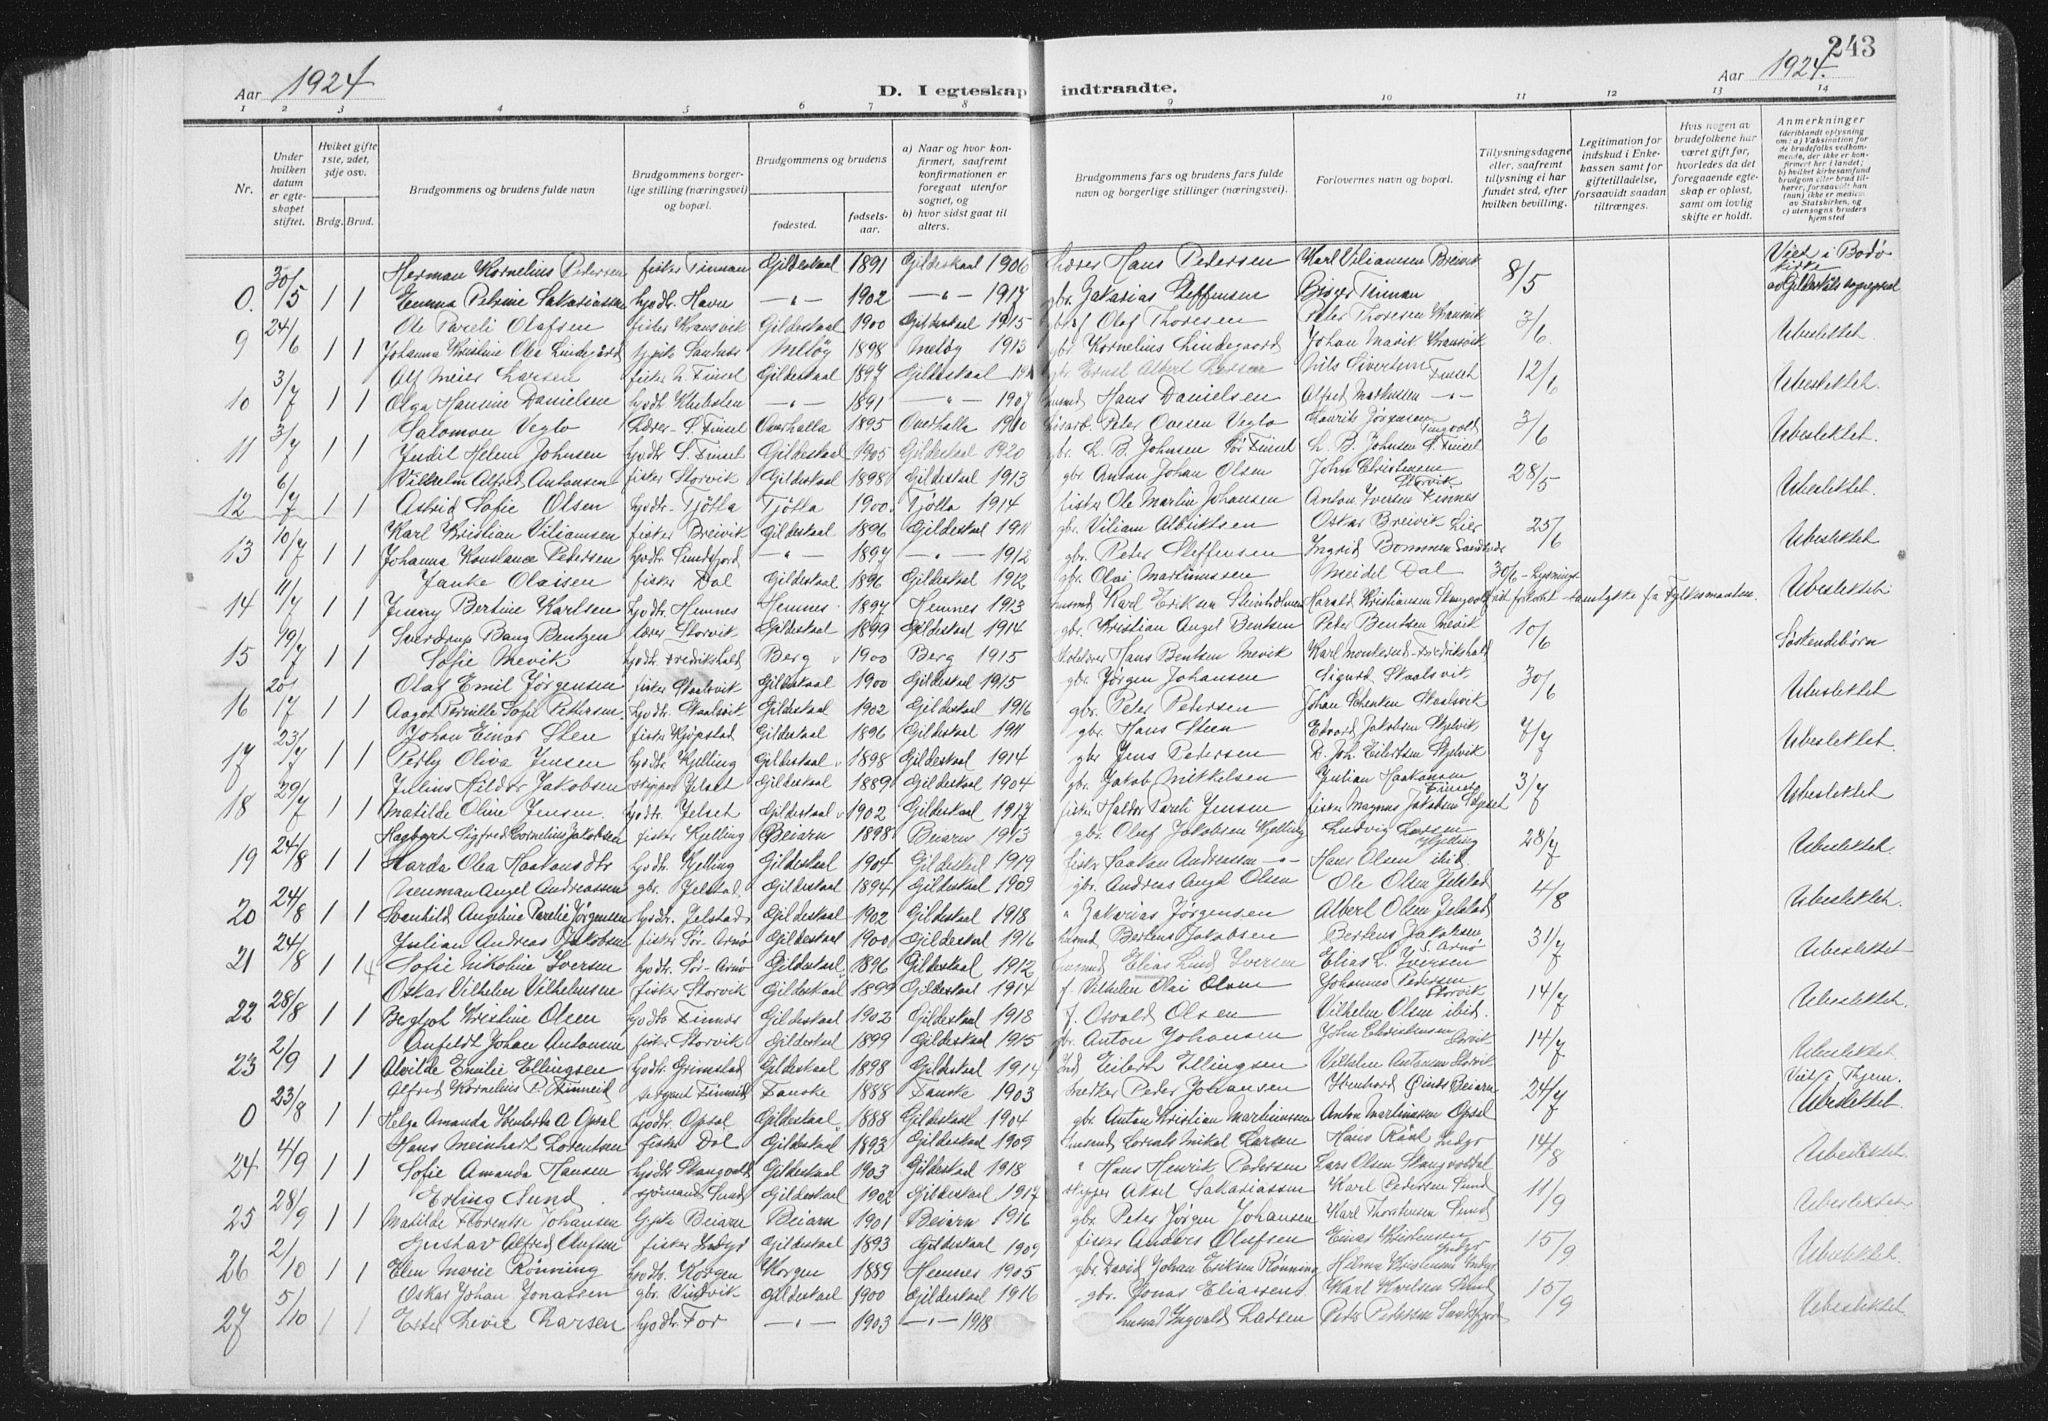 243
Aar 1924
D. I egteskap indtraadte.
Aar 1924.
1 2 3 4 5 6 7 8 9 10 11 12 13 14
Nr.
Under hvilken datum er egteskapet stiftet.
Hviket gifte 1ste, 2det, 3dje osv.
Brdg. Brud.
Brudgommens og brudens fulde navn
Brudgommens borgerlige stilling (næringsvei) og bopæl.
Brudgommens og brudens
fødested.
fødselsaar.
a) Naar og hvor konfirmert, saafremt konfirmationen er foregaat utenfor sognet, og
b) hvor sidst gaat til alters.
Brudgommens fars og brudens fars fulde navn og borgerlige stillinger (næringsvei).
Forlovernes navn og bopæl.
Tillysningsdagene eller, saafremt tillysning ei har fundet sted, efter hvilken bevilling.
Legitimation for indskud i Enkekassen samt for giftetilladelse, forsaavidt saadan tiltrænges.
Hvis nogen av brudefolkene har været gift før, hvorledes da det foregaaende egteskap er opløst, samt om lovlig skifte er holdt.
Anmerkninger (deriblandt oplysning om: a) Vaksination for de brudefolks vedkommende, der ikke er konfirmert her i landet; b) hvilket kirkesamfund brudgom eller brud tilhører, forsaavidt han (hun) ikke er medlem av Statskirken, og c) utensogns bruders hjemsted
30/5 Herman Kornelius Pedersen fisker Finman Gildeskaal 1891 Gildeskaal 1906 Lærer Hans Pedersen Karl Viliamsen Breivik 8/5 Viet i Bodø kirke
0. 1 1 Emma Petrine Sakariassen hjdtr. Havn —"— 1902 —"— 1917 gbr. Zakarias Steffensen Birger Finman
24/6 Ole Pareli Olafsen fisker Kransvik Gildeskaal 1900 Gildeskaal 1915 Olaf Thoresen Peter Thoresen Kransvik 3/6 Ubeslektet
9 1 1 Johanna Kristine Olea Lindegård Meløy 1898 Meløy 1913 gbr. Kornelius Lindegaard Johan Mavik Kransvik
3/7 Alf Meier Larsen fisker N. Finset Gildeskaal 1897 Gildeskaal gbr Ernst Albert Larsen Nils Sivertsen Finset 12/6 Ubeslektet.
10 1 1 Olga Hansine Danielsen hjdtr. —"— 1891 —"— 1907 husmd Hans Danielsen Alfred Markussen —"—
3/7 Salomon Veglo Lærer S. Finset Overhalla 1895 Overhalla 1910 Peter Ovesen Veglo Henrik Jørgensen 3/6 Ubeslektet.
11 1 1 Judit Helene Johnsen hjdtr S. Finset Gildeskaal 1905 Gildeskaal 1920 gbr. L. B. Johnsen Sør Finset L. B. Johnsen S. Finset
6/7 Vilhelm Alfred Antonsen fisker Storvik Gildeskaal 1898 Gildeskaal 1913 gbr. Anton Johan Olsen John Christensen Storvik 28/5 Ubeslektet.
12 1 1 Astrid Sofie Olsen hjdtr. Tjøtta Tjøtta 1900 Tjøtta 1914 fisker Ole Martin Johansen Anton Iversen Finnes
10/7 Karl Kristian Viliamsen fisker Breivik Gildeskaal 1896 Gildeskaal 1911 gbr. Viliam Albriktsen Oskar Breivik Lier 25/6 Ubeslektet
13 1 1 Johanna Konstance Petersen hjdtr Sundsfjord —"— 1897 —"— 1912 gbr. Peter Steffensen Ingrid Bommen
11/7 Janke Olaisen fisker Dal Gildeskaal 1896 Gildeskaal 1912 gbr. Olai Martinussen Meidel Dal 30/6 - Lysnings Ubeslektet
14 1 1 Jenny Bertine Karlsen hjdtr. Hemnes Hemnes 1897 Hemnes 1913 husmd Karl Eriksen Harald Kristiansen samtykke fra Fylkesmanden.
19/7 Sverdrup Bang Bentzen lærer Storvik Gildeskaal 1899 Gildeskaal 1914 gbr. Kristian Angel Bentsen Peter Bentsen Mevik 10/6 Søskendebørn
15 1 1 Sofie Mevik hjdtr Fredrikshald Berg 1900 Berg 1915 Hans Bentsen Mevik Karl Fredrikshald
20/7 Olaf Emil Jørgensen fisker Skaalsvik Gildeskaal 1900 Gildeskaal 1915 gbr. Jørgen Johansen Sigurd Skaalsvik 30/6 Ubeslektet
16 1 1 Aagot Pernille Sofie Pettersen hjdtr. Skaalsvik Gildeskaal 1902 Gildeskaal 1916 gbr. Peter Petersen Johan Schenken Skaalsvik
23/7 Johan Einar Sten fisker Kjøpstad Gildeskaal 1896 Gildeskaal 1911 gbr. Hans Steen Edvard Jakobsen Skjelvik 7/7 Ubeslektet.
17 1 1 Petty Oliva Jensen hjdtr Kjelling Gildeskaal 1898 Gildeskaal 1914 gbr Jens Pedersen D. Joh. Eilertsen Skjelvik
29/7 Julius Hildor Jakobsen skipper Jelset Gildeskaal 1889 Gildeskaal 1904 gbr. Jakob Mikkelsen Julian Haakonsen 3/7 Ubeslektet
18 1 1 Matilde Oline Jensen hjdtr. Jelset Gildeskaal 1902 Gildeskaal 1917 fisker Haldor Pareli Jensen fisker Magnus Jakobsen
24/8 Hagbart Sigfred Cornelius Jakobsen fisker Kjelling Beiarn 1898 Beiarn 1913 gbr. Oluf Jakobsen Kjelling Ludvig Larsen Kjelling 28/7 Ubeslektet
19 1 1 Harda Olea Haakonsdtr hjdtr. Kjelling Gildeskaal 1904 Gildeskaal 1919 fisker Haakon Andreassen —"— Hans Olsen ibid.
24/8 Neuman Angel Andreassen gbr. Jelstad Gildeskaal 1894 Gildeskaal 1909 gbr. Andreas Angel Olsen Ole Olsen Jelstad 4/8 Ubeslektet.
20 1 1 Svanhild Angeline Parelie Jørgensen hjdtr. Jelstad Gildeskaal 1902 Gildeskaal 1918 " Zakarias Jørgensen Albert Olsen Jelstad
24/8 Julian Andreas Jakobsen fisker Sør-Arnø Gildeskaal 1900 Gildeskaal 1916 husmd Bertens Jakobsen Bertens Jakobsen S. Arnø 31/7 Ubeslektet
21 1 1 Sofie Nikoline Iversen hjdtr. Sør-Arnø Gildeskaal 1896 Gildeskaal 1912 husmd Elias Lind Iversen Elias L. Iversen
28/8 Oskar Vilhelm Vilhelmsen fisker Storvik Gildeskaal 1899 Gildeskaal 1914 f. Vilhelm Olai Olsen Johannes Pedersen Storvik 14/7 Ubeslektet.
22 1 1 Bergljot Kristine Olsen hjdtr Finnes Gildeskaal 1902 Gildeskaal 1918 f. Osvald Olsen Vilhelm Olsen ibid.
2/9 Anfeldt Johan Antonsen fisker Storvik Gildeskaal 1899 Gildeskaal 1915 gbr. Anton Johansen John Christensen Storvik 14/7 Ubeslektet.
23 1 1 Alvilde Emilie Ellingsen hjdtr. Grimstad Gildeskaal 1898 Gildeskaal 1914 Ind Eilert Ellingsen Vilhelm Antonsen Storvik
23/8 Alfred Kornelius P. Finneid sergent Finneid Fauske 1888 Fauske 1903 snedker Peder Johansen Beiarn 24/7 Viet i Hjem. Ubeslektet.
0 1 1 Helga Amanda A Opsal hjdtr. Opsal Gildeskaal 1888 Gildeskaal 1904 gbr. Anton Kristian Martinussen Anton Martinussen Opsal
4/9 Hans Meinhart Lorentsen fisker Dal Gildeskaal 1893 Gildeskaal 1909 husmd Lorents Mikal Larsen Hans Indyr 14/8 Ubeslektet.
24 1 1 Sofie Amanda Hansen hjdtr Gildeskaal 1903 Gildeskaal 1918 " Hans Henrik Pedersen Lars Olsen
28/9 Erling Sund. sjømand Sund Gildeskaal 1902 Gildeskaal 1917 skipper Aksel Sakariassen Karl Pedersen Sund 11/9 Ubeslektet
25 1 1 Matilde Florentse Johansen Beiarn Beiarn 1901 Beiarn 1916 gbr. Peter Jørgen Johansen Karl Thorstensen Sund
2/10 Gustav Alfred Olufsen fisker Indyr Gildeskaal 1893 Gildeskaal 1909 fisker Anders Olufsen Einar Kristensen Indyr 15/9 Ubeslektet.
26 1 1 Elen Marie Rønning hjdtr. Korgen Korgen 1889 Hemnes 1905 gbr. David Johan Eriksen Rønning Helena Kristensen Indyr
5/10 Oskar Johan Jonassen gbr. Vindvik Gildeskaal 1900 Gildeskaal 1916 gbr. Jonas Eliassen Karl Karlsen Sund 15/9 Ubeslektet
27 1 1 Ester Levie Larsen hjdtr. For —"— 1903 —"— 1918 husmd Ingvald Larsen Peter Petersen Sundsfjord